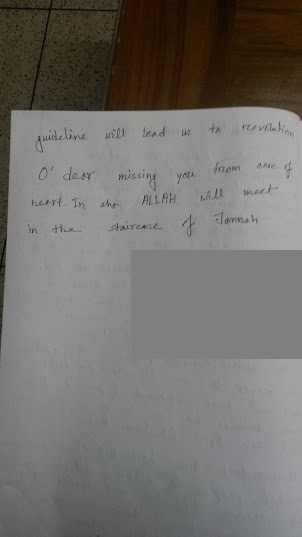 guideline will lead us to revolution
O' dear missing you from core of
heart. In sha ALLAH will meet
in the staircase of Jannah